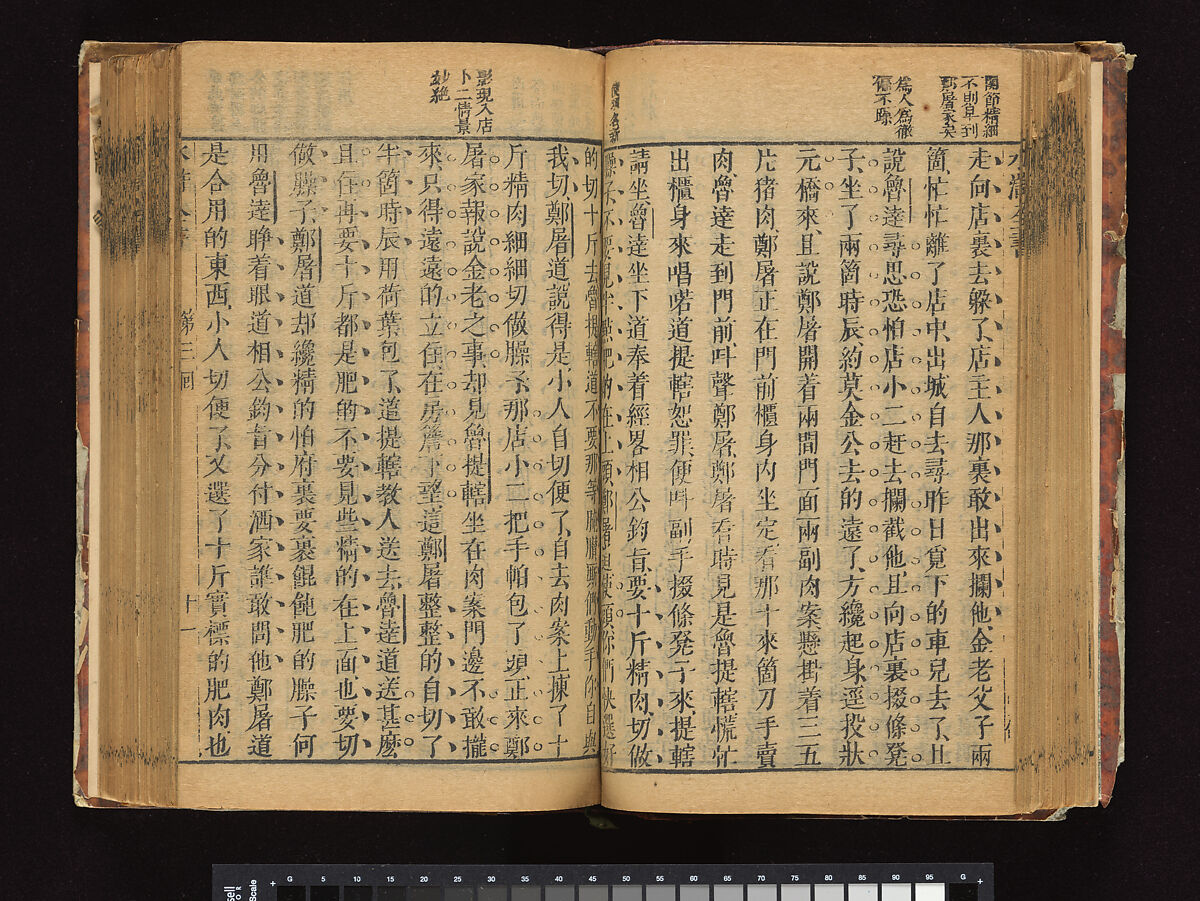 關節精細
不則卓到
鄭屠家矣
爲人爲徹
水滸全書
走向店裏去躲了店主人那裏敢出來攔他金老父子兩
箇忙忙離了店中出城自去尋昨日覓下的車兒去了且
說魯達尋思恐怕店小二赶去攔截他且向店裏掇條凳
子坐了兩箇時辰約莫金公去的遠了方纔起身逕投狀
元橋來且說鄭屠開着兩間門面兩副肉案懸掛着三五
片猪肉鄭屠正在門前櫃身内坐定看那十來箇刀手賣
肉魯達走到門前叫聲鄭屠鄭屠看時見是魯提轄慌忙
出櫃身來唱喏道提轄恕罪便叫副手掇條凳子來提轄
請坐魯達坐下道奉着經畧相公鈞旨要十斤精肉切做
臊子不要見半點肥的在上頭鄭屠道使頭你們快選好
影現入店
卜二情景
妙絶
的切十斤去魯提轄道不要那等腌臢厮們動手你自與
我切鄭屠道說得是小人自切便了自去肉案上揀了十
斤精肉細細切做臊子那店小二把手帕包了頭正來鄭
屠家報說金老之事却見魯提轄坐在肉案門邊不敢攏
來只得遠遠的立住在房簷下望這鄭屠整整的自切了
半箇時辰用荷葉包了道提轄教人送去魯達道送甚麼
且住再要十斤都是肥的不要見些精的在上面也要切
做臊子鄭屠道却纔精的怕府裏要裹餛飩肥的臊子何
用魯達睁着眼道相公鈞旨分付洒家誰敢問他鄭屠道
是合用的東西小人切便了又選了十斤實標的肥肉也
水滸全書
第三回
十一